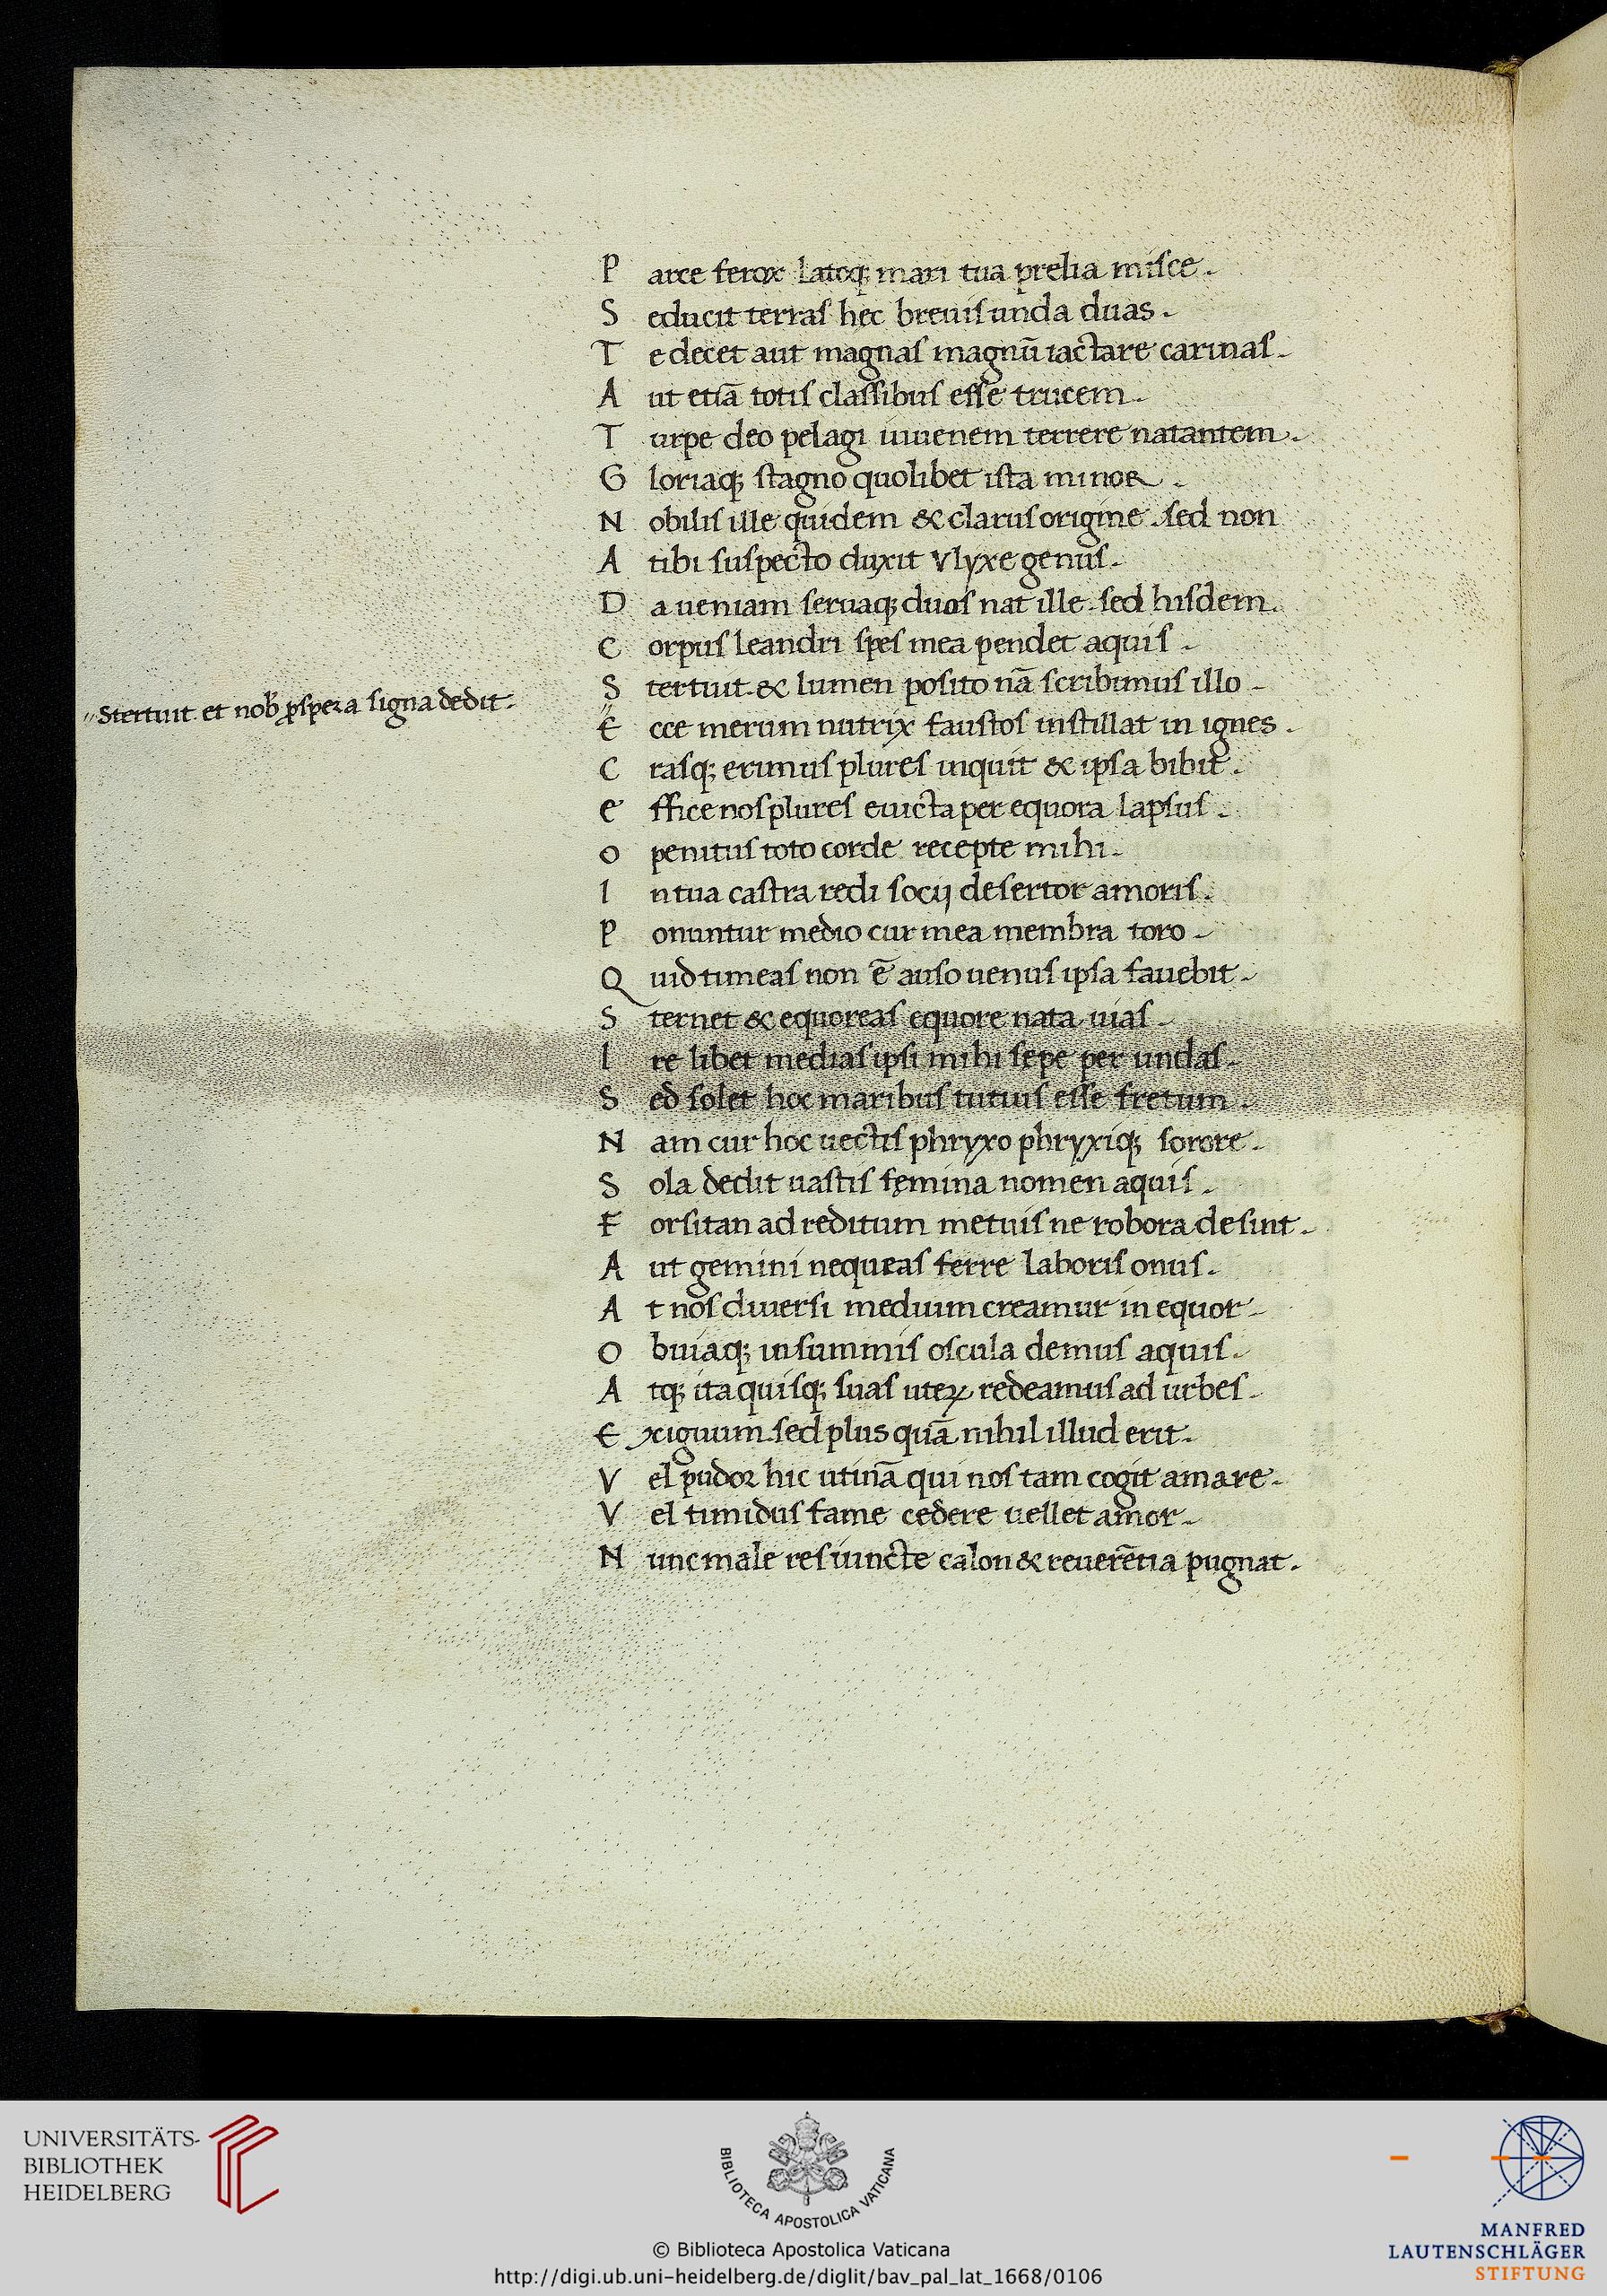 Parce ferox latoq; mari tua prelia misce.
Seducit terras hęc breuis unda duas.
Te decet aut magnas magnū iactare carinas.
Aut etiā totis classibus esse trucem.
Turpe deo pelagi iuuenem terrere natantem.
Gloriaq; stagno quolibet ista minor.
Nobilis ille quidem & clarus origine. sed non
A tibi suspecto duxit Vlyxe genus.
Da ueniam seruaq; duos nat ille. sed hisdem.
Corpus leandri spes mea pendet aquis.
Stertuit. & lumen posito nā scribimus illo.
"Stertuit. et nob' ꝓspera signa dedit.
"Ecce merum nutrix faustos instillat in ignes.
Crasq; erimus plures inquit & ipsa bibit.
Effice nos plures euicta per equora lapsus.
O penitus toto corde recepte mihi.
In tua castra redi socij desertor amoris.
Ponuntur medio cur mea membra toro.
Quid timeas non ē auso uenus ipsa fauebit.
Sternet & equoreas equore nata uias.
Ire libet medias ipsi mihi sępe per undas.
Sed solet hoc maribus tutius esse fretum.
Nam cur hoc uectis phryxo phryxiq; sorore.
Sola dedit uastis fęmina nomen aquis.
Forsitan ad reditum metuis ne robora desint.
Aut gemini nequeas ferre laboris onus.
At nos diuersi medium creamur in equor.
Obuiaq; in summis oscula demus aquis.
Atq; ita quisq; suas iterꝝ redeamus ad urbes.
Exiguum. sed plus quā nihil illud erit.
Vel pudor hic utinā qui nos tam cogit amare.
Vel timidus fame cedere uellet amor.
Nunc male res iuncte calon & reuerētia pugnat.
UNIVERSITÄTS-
BIBLIOTHEK
HEIDELBERG
BIBLIOTECA APOSTOLICA VATICANA
© Biblioteca Apostolica Vaticana
http://digi.ub.uni-heidelberg.de/diglit/bav_pal_lat_1668/0106
MANFRED
LAUTENSCHLÄGER
STIFTUNG